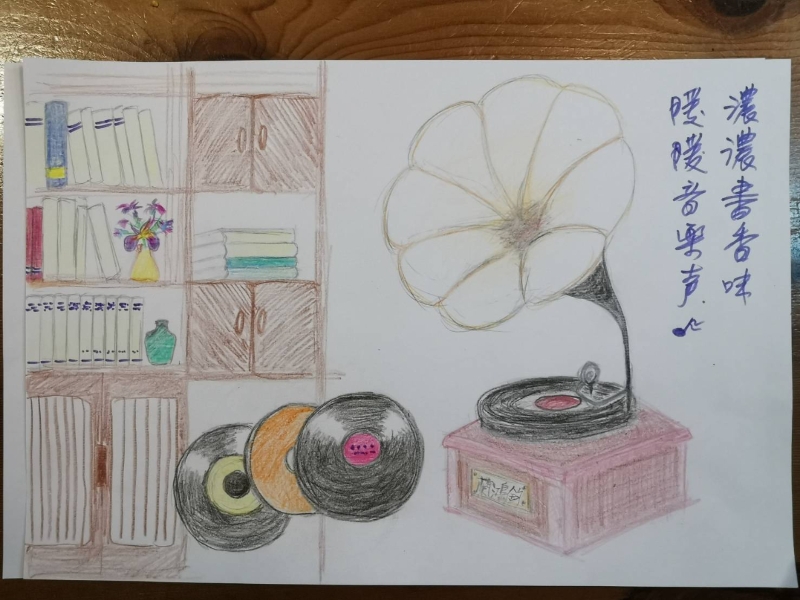 濃濃書香味
暖暖音樂声